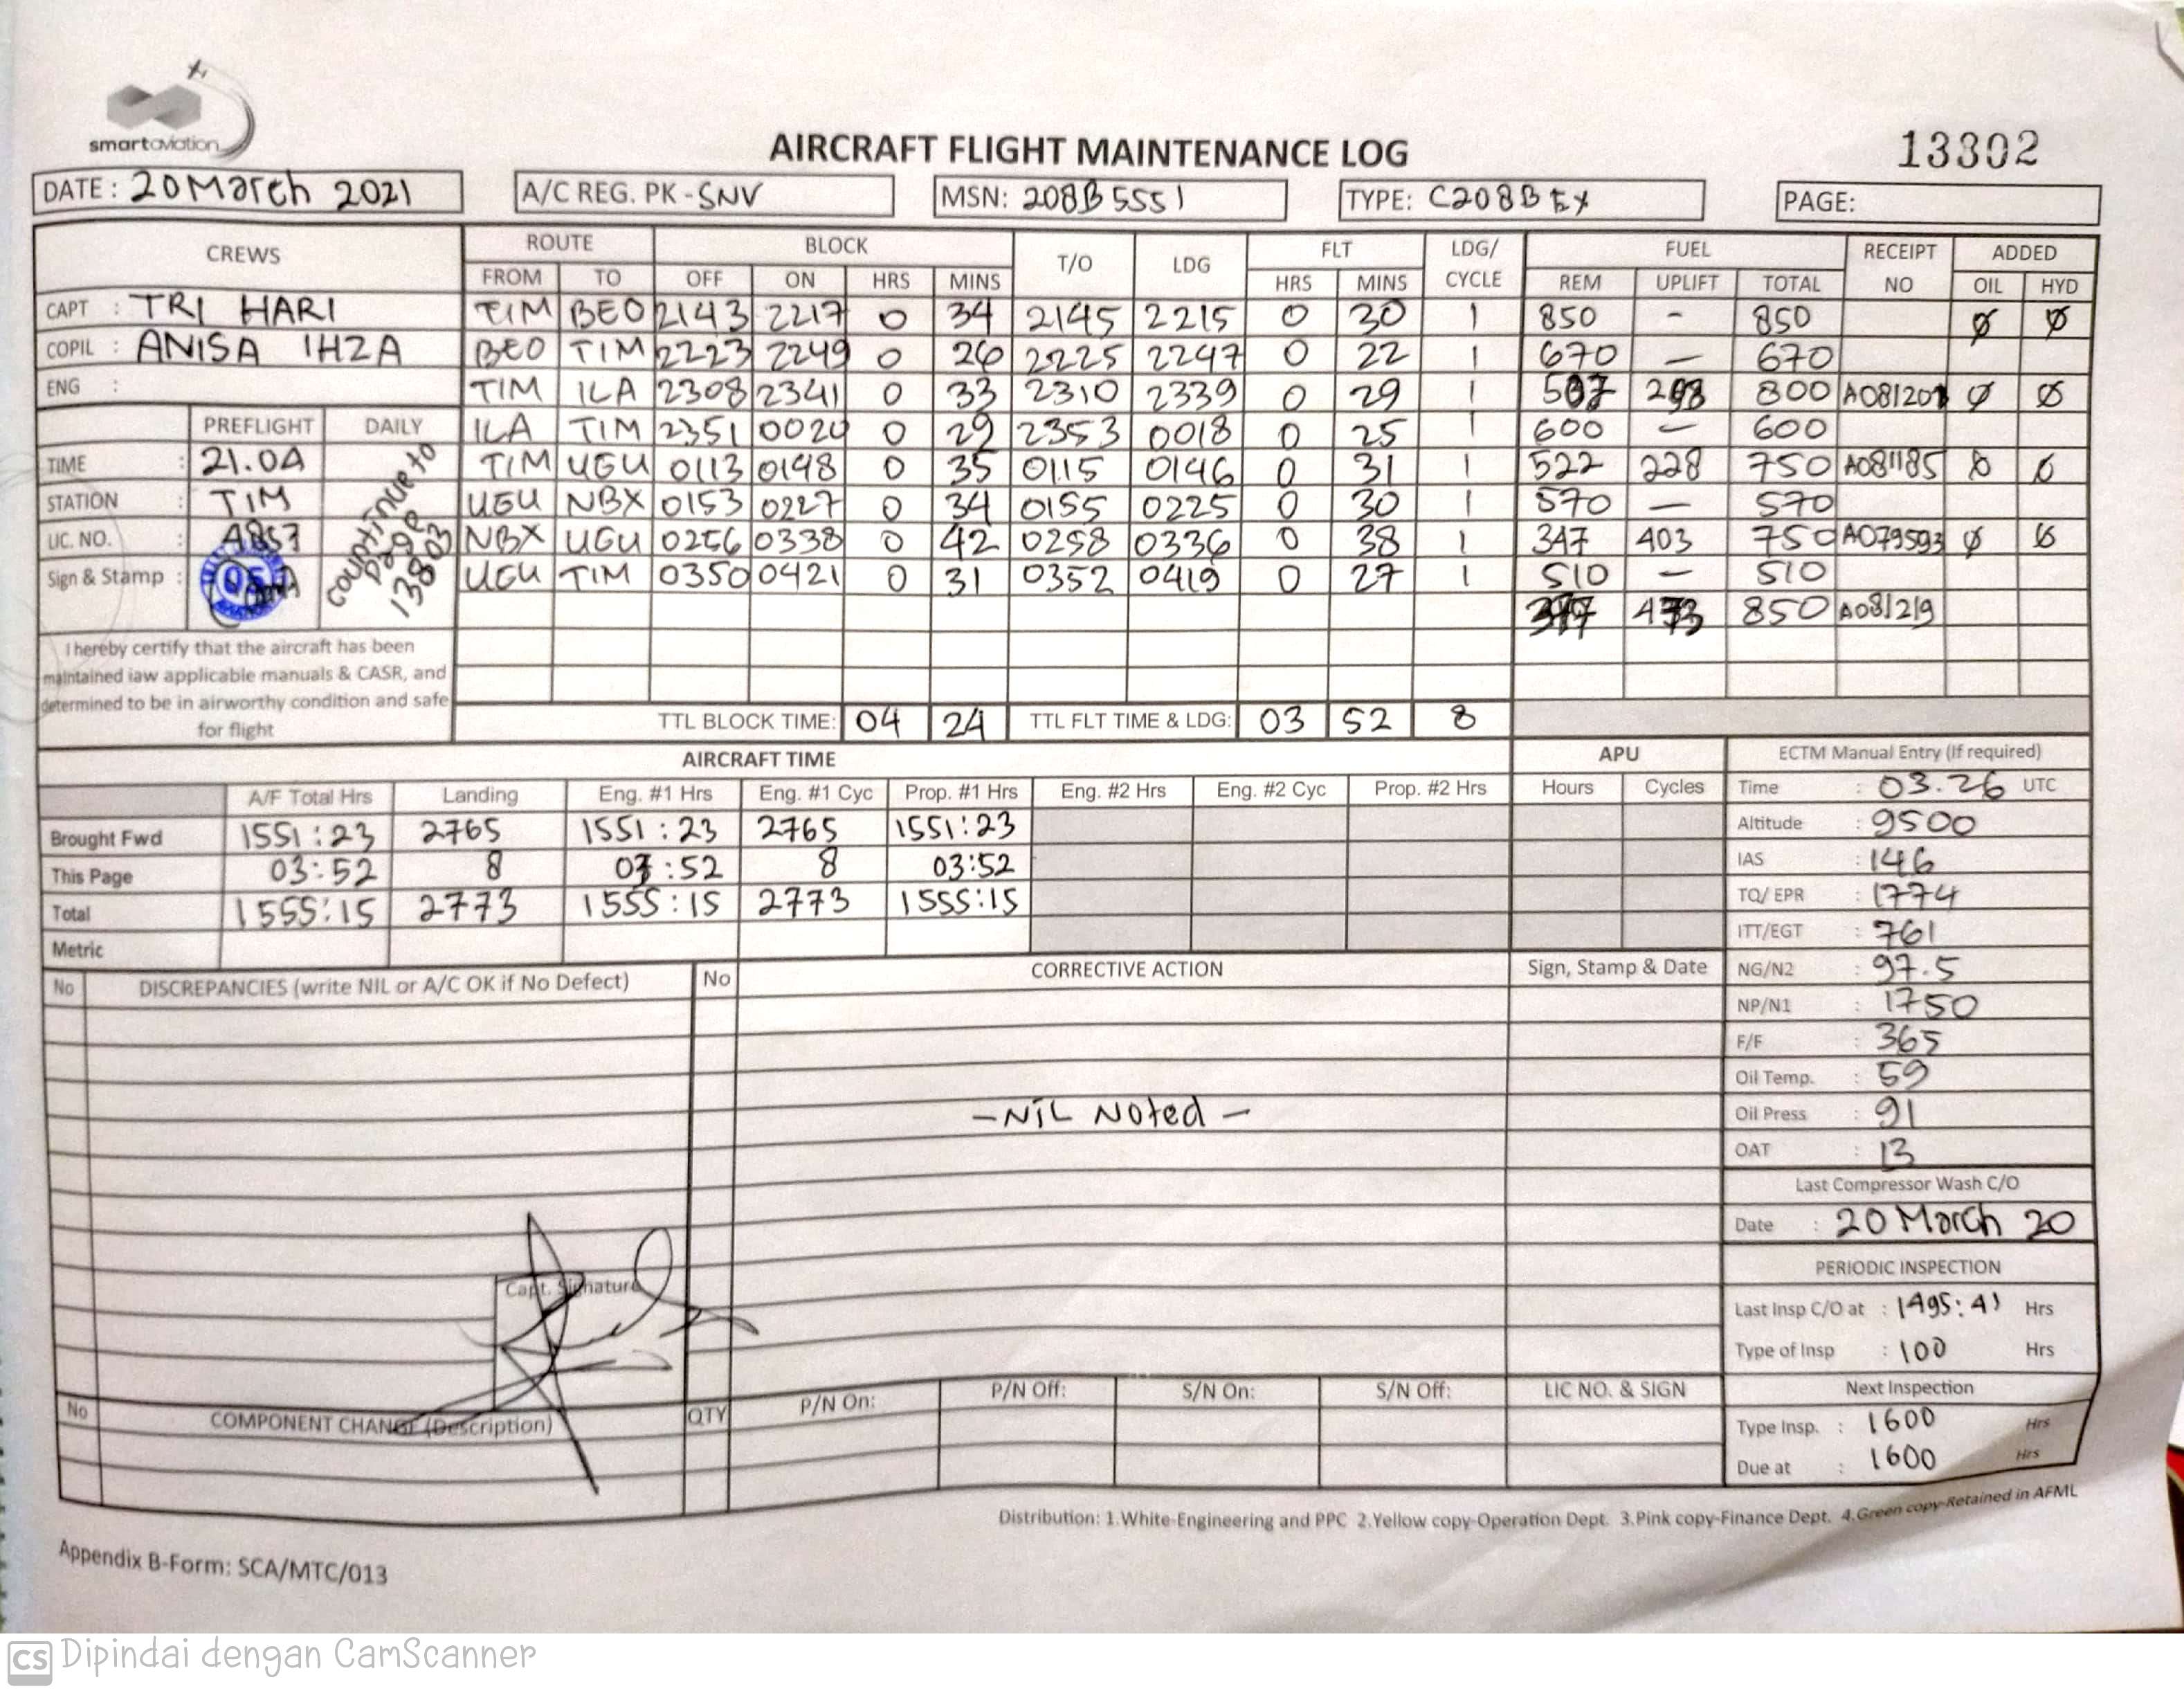 smartaviation
AIRCRAFT FLIGHT MAINTENANCE LOG
13802
DATE: 20 March 2021 A/C REG. PK - SNV MSN: 208B 5551 TYPE: C208B EX PAGE:
CREWS ROUTE BLOCK T/O LDG FLT LDG/ CYCLE FUEL RECEIPT NO ADDED
FROM TO OFF ON HRS MINS HRS MINS REM UPLIFT TOTAL OIL HYD
CAPT : TRI HARI TIM BEO 2143 2217 0 34 2145 2215 0 30 1 850 - 850 Ø Ø
COPIL : ANISA IHZA BEO TIM 2223 2249 0 26 2225 2247 0 22 1 670 — 670
ENG : TIM ILA 2308 2341 0 33 2310 2339 0 29 1 800 Ø Ø
PREFLIGHT DAILY ILA TIM 2351 0020 0 29 2353 0018 0 25 1 600 — 600
TIME : 21.04 TIM UGU 0113 0148 0 35 0115 0146 0 31 1 522 228 750 A081185 Ø Ø
STATION : TIM UGU NBX 0153 0227 0 34 0155 0225 0 30 1 570 — 570
LIC. NO. : NBX UGU 0256 0338 0 42 0258 0336 0 38 1 347 403 750 A079593 Ø Ø
Sign & Stamp : UGU TIM 0350 0421 0 31 0352 0419 0 27 1 510 — 510
850 A081219
countinue to page 13803
I hereby certify that the aircraft has been
maintained iaw applicable manuals & CASR, and
determined to be in airworthy condition and safe
for flight
TTL BLOCK TIME: 04 24 TTL FLT TIME & LDG: 03 52 8
AIRCRAFT TIME APU ECTM Manual Entry (If required)
A/F Total Hrs Landing Eng. #1 Hrs Eng. #1 Cyc Prop. #1 Hrs Eng. #2 Hrs Eng. #2 Cyc Prop. #2 Hrs Hours Cycles Time : 03.26 UTC
Brought Fwd 1551:23 2765 1551:23 2765 1551:23 Altitude : 9500
This Page 03:52 8 03:52 8 03:52 IAS : 146
Total 1555:15 2773 1555:15 2773 1555:15 TQ/ EPR : 1774
Metric ITT/EGT : 761
No DISCREPANCIES (write NIL or A/C OK if No Defect) No CORRECTIVE ACTION Sign, Stamp & Date NG/N2 : 97.5
NP/N1 : 1750
F/F : 365
Oil Temp. : 59
- NIL Noted - Oil Press : 91
OAT : 13
Last Compressor Wash C/O
Date : 20 March 20
PERIODIC INSPECTION
Capt. Signature
Last Insp C/O at : 1495:41 Hrs
Type of Insp : 100 Hrs
No COMPONENT CHANGE (Description) QTY P/N On: P/N Off: S/N On: S/N Off: LIC NO. & SIGN Next Inspection
Type Insp. : 1600 Hrs
Due at : 1600 Hrs
Distribution: 1.White-Engineering and PPC 2.Yellow copy-Operation Dept. 3.Pink copy-Finance Dept. 4.Green copy-Retained in AFML
Appendix B-Form: SCA/MTC/013
CS Dipindai dengan CamScanner